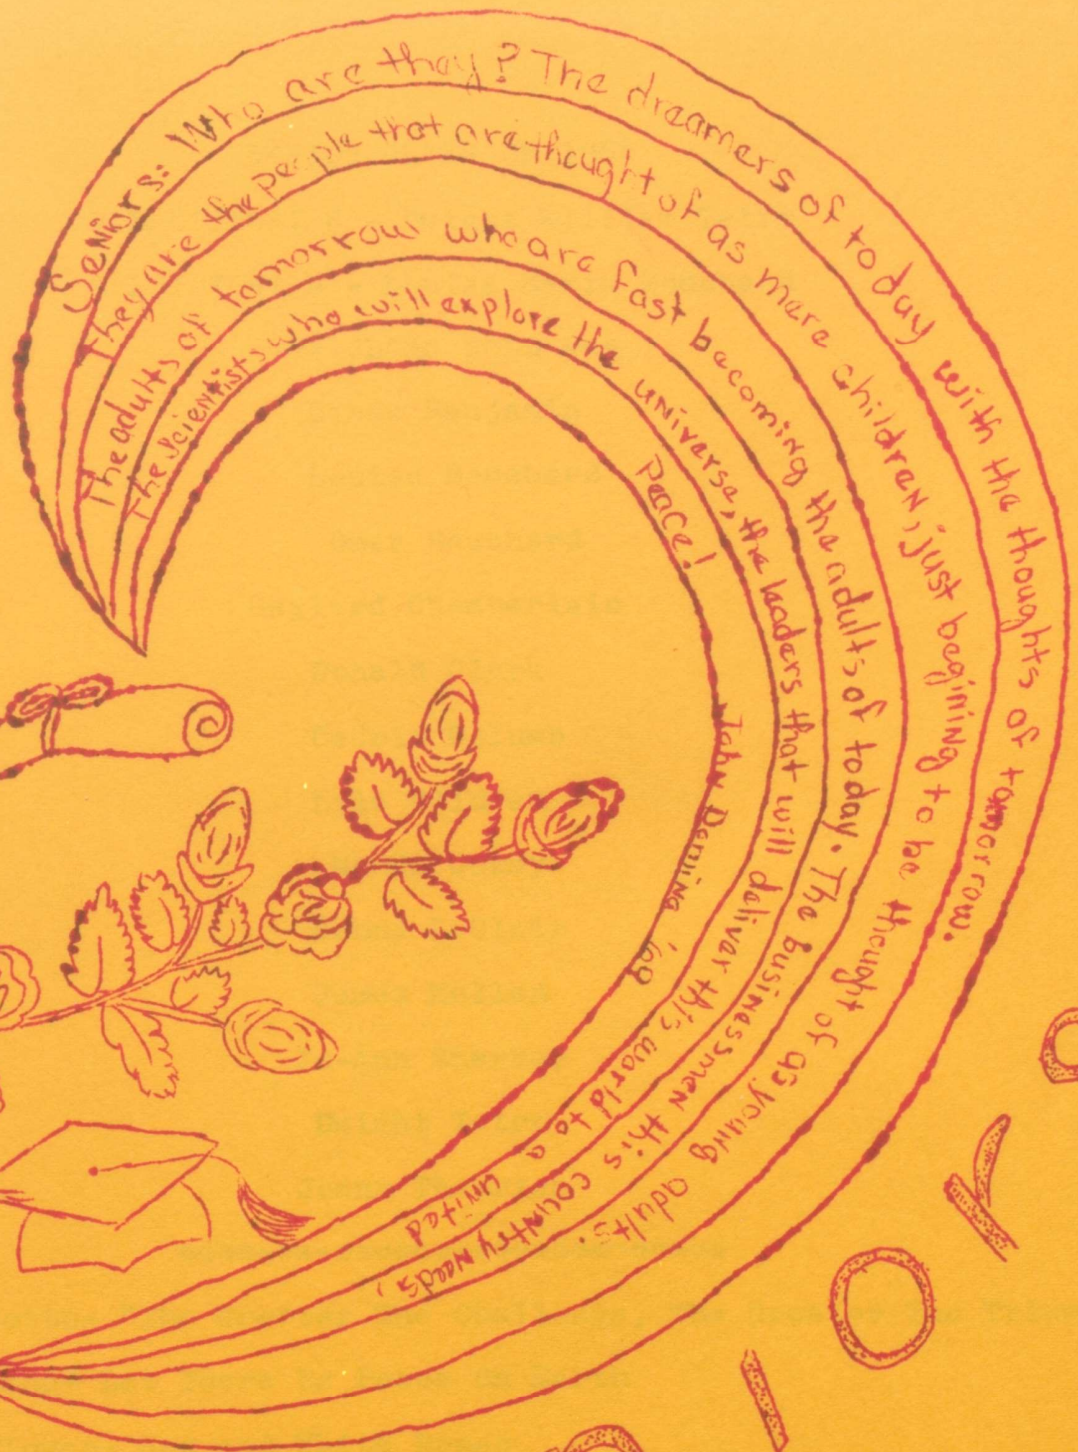 Seniors: Who are they? The dreamers of today with the thoughts of tomorrow.
They are the people that are thought of as mere children, just begining to be thought of as young adults.
The adults of tomorrow who are fast becoming the adults of today. The businessmen this country needs,
The scientists who will explore the universe, the leaders that will deliver this world to a united
Peace!
John '69